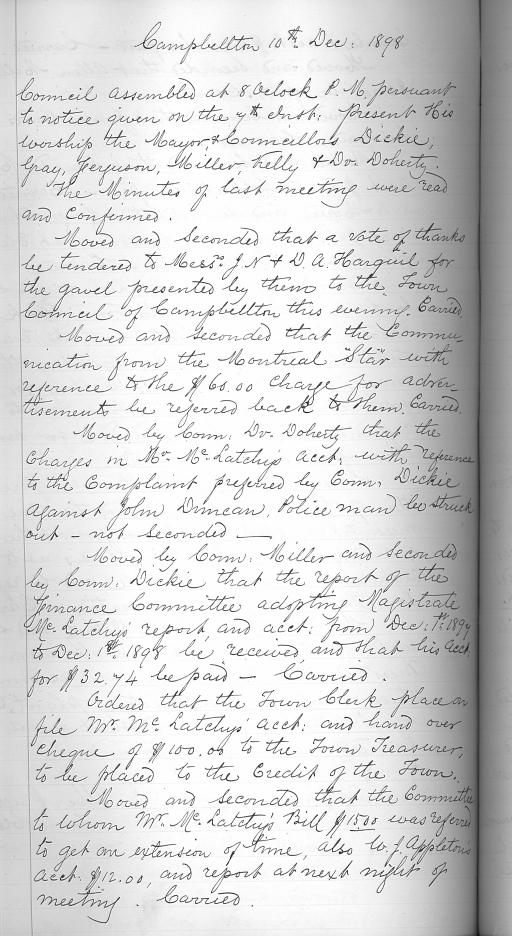 Campbellton 10th Dec: 1898
Council assembled at 8 Oclock P.M. persuant
to notice given on the 7th Inst: present His
worship the Mayor, & Councillors Dickie,
Gray, Ferguson, Miller, Kelly & Dr. Doherty.
The Minutes of last meeting were read
and Confirmed.
Moved and Seconded that a vote of thanks
be tendered to Messrs J N & D. A. Harquil for
the gavel presented by them to the Town
Council of Campbellton this evening. Carried.
Moved and seconded that the Commu-
nication from the Montreal "Star" with
reference to the $60.00 Charge for adver-
tisements be referred back to them. Carried.
Moved by Coun: Dr. Doherty that the
Charges in Mr. McLatchy's acct: with reference
to the Complaint preferred by Coun: Dickie
against John Duncan, Police man be struck
out - not seconded —
Moved by Coun: Miller and Seconded
by Coun: Dickie that the report of the
Finance Committee adopting Magistrate
McLatchy's report and acct: from Dec: 1st 1897
to Dec: 1st 1898 be received and that his acct:
for $32.74 be paid - Carried.
Ordered that the Town Clerk place on
file Mr. McLatchy's acct: and hand over
Cheque of $100.00 to the Town Treasurer,
to be placed to the Credit of the Town.
Moved and Seconded that the Committee
to whom Mr. McLatchy's Bill $15.00 was referred
to get an extension of time, also W. J. Appleton's
acct. $12.00, and report at next night of
meeting. Carried.